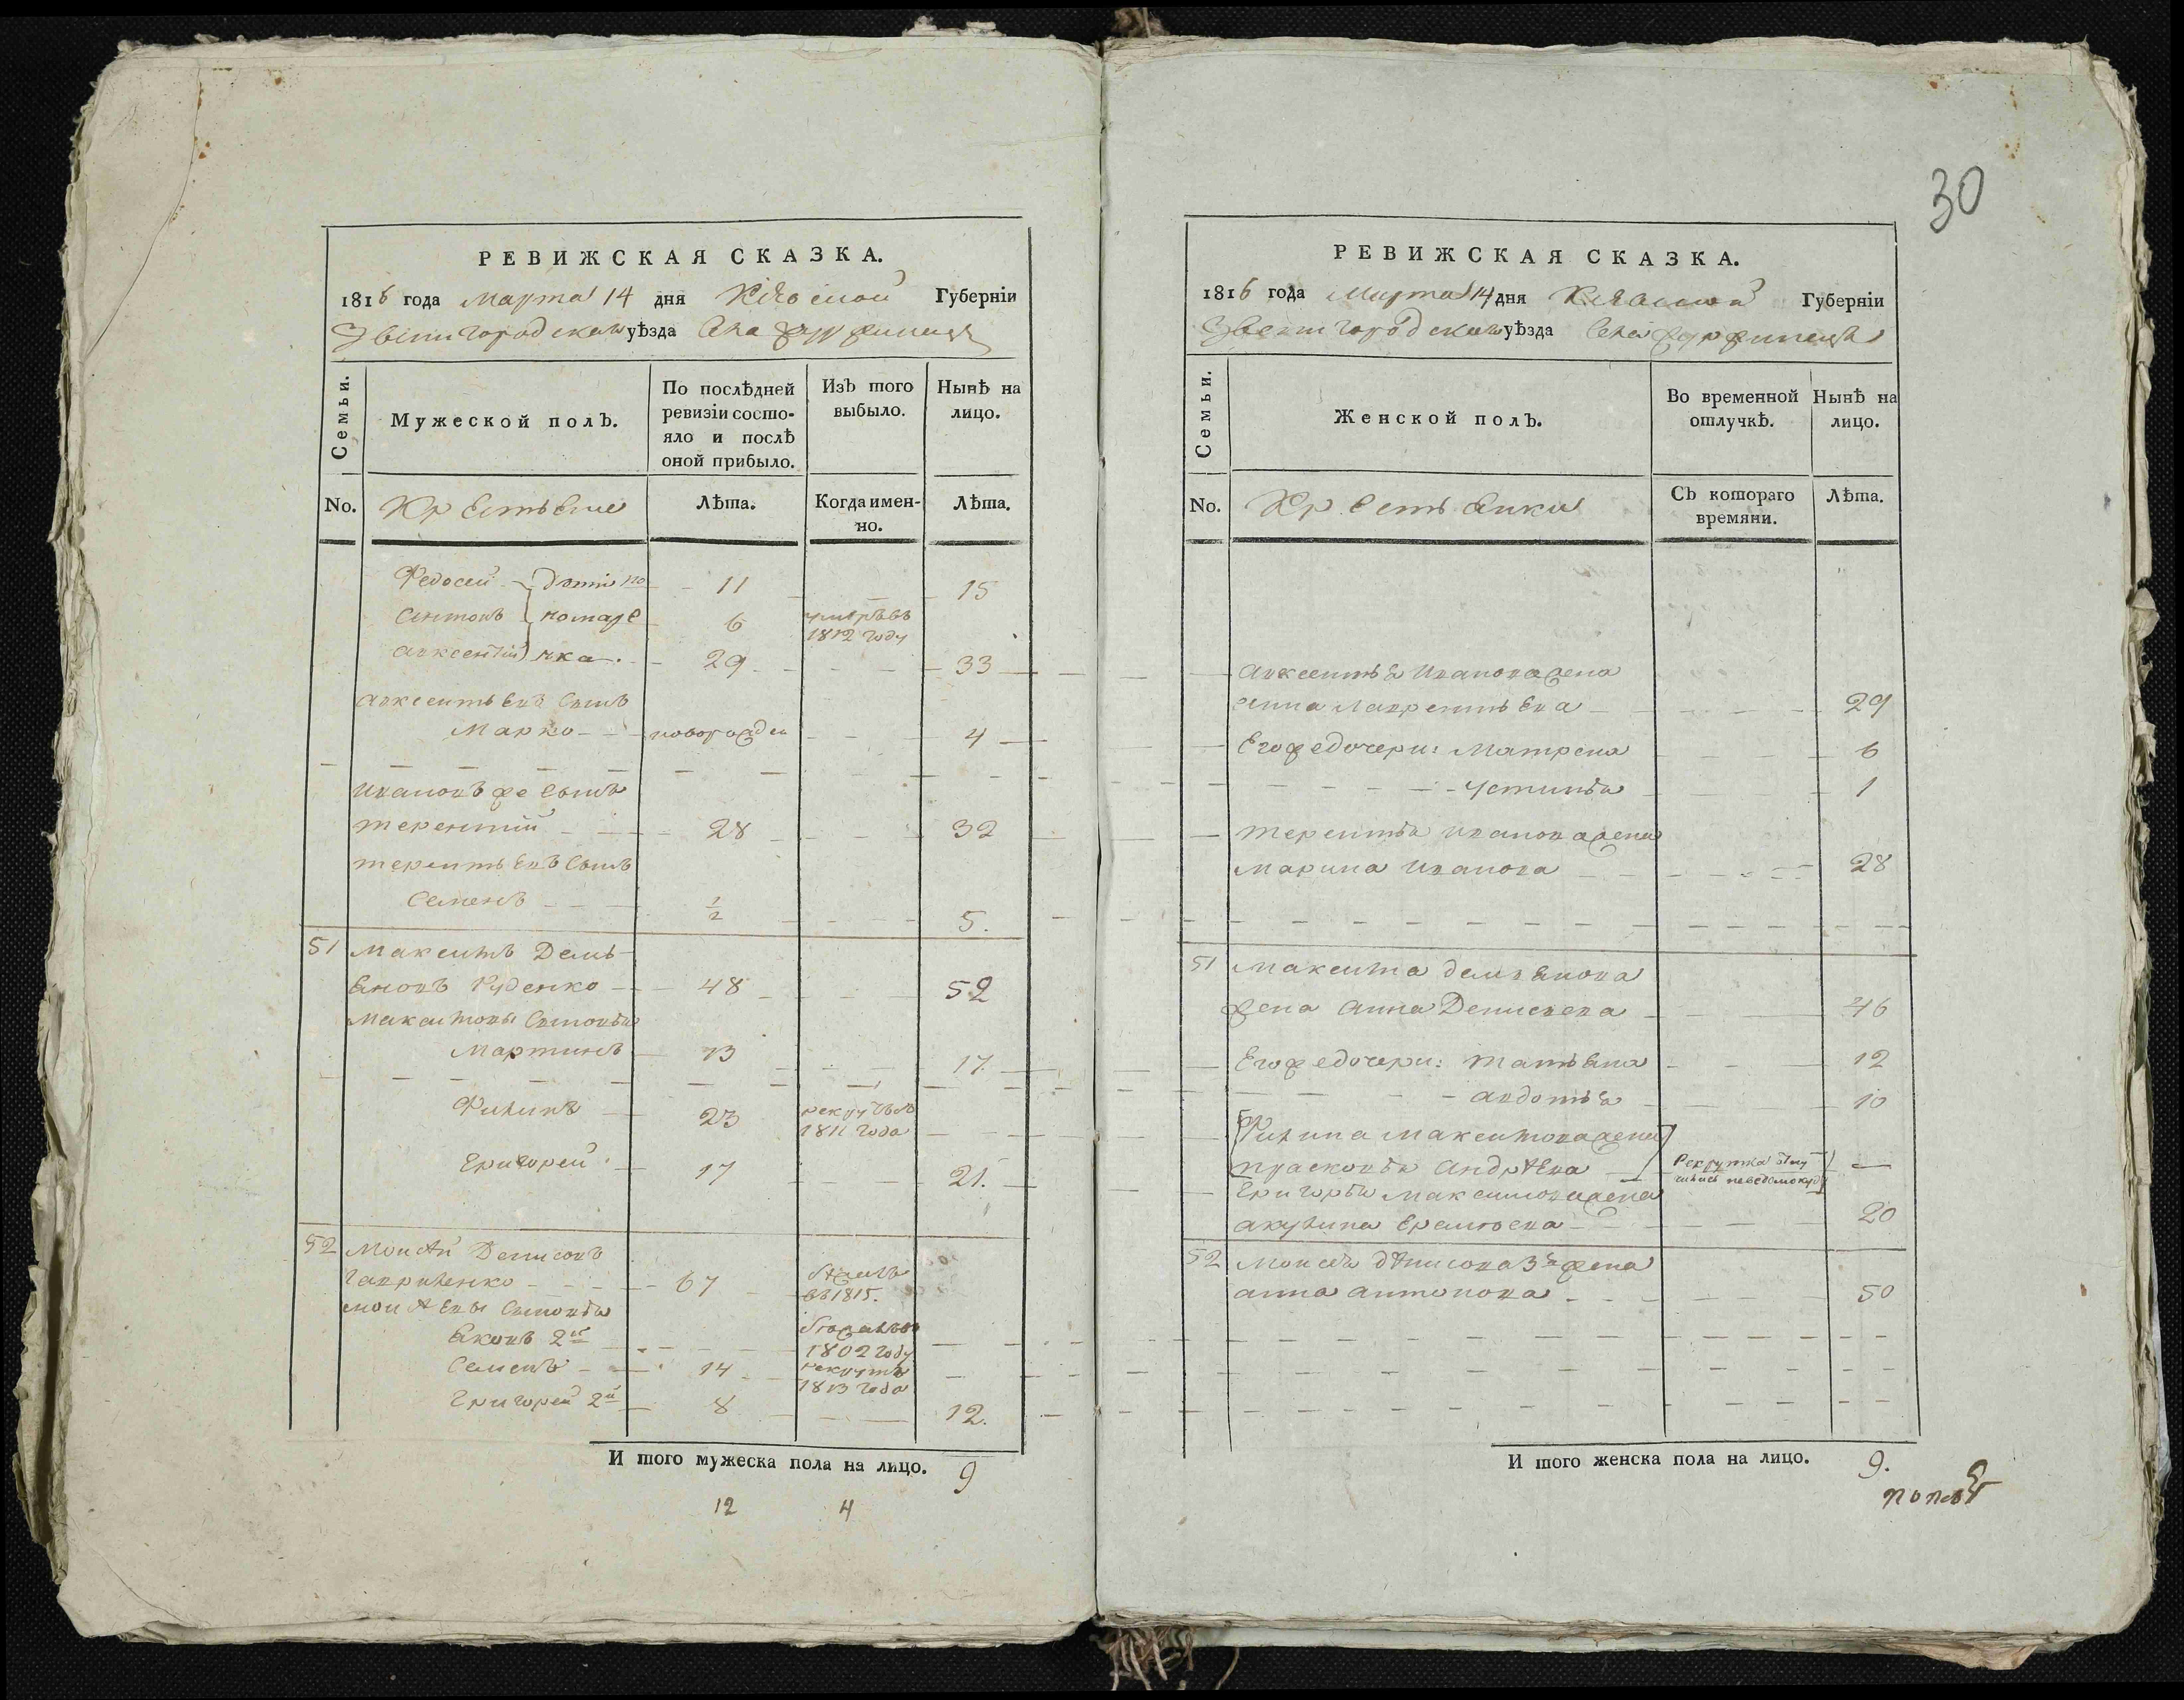 РЕВИЖСКАЯ СКАЗКА.
1816 года Марта 14 дня Кіевской Губерніи
Звенигородскаго уѣзда Села
Семьи.
Мужеской полЪ.
По послѣдней ревизіи состо-
яло и послѣ
оной прибыло.
ИзЪ того
выбыло.
Нынѣ на
лицо.
No.
Крестьяне
Лѣта.
Когда имен-
но.
Лѣта.
Федосей дѣти По 11 15
Антонъ номаре 6 умре въ
1812 году
Авксентій нка. 29 33
Авксентьевъ Сынъ
Марко новорожден 4
Ивановъ же Сынъ
терентій 28 32
терентьевъ Сынъ
Семенъ 1/2 5.
51 Максимъ Демь-
яновъ Руденко 48 52
Максимовы Сыновья
Мартинъ 13 17.
Филипъ 23 рекрут въ
1811 года
Григорей 17 21.
52 Моисѣй Денисовъ
Гавриленко 67
въ 1815.
Моисѣевы Сыновья
Яковъ 2й
1802 году
Семенъ 14 рекрутъ
1813 года
Григорей 2й 8 12.
И того мужеска пола на лицо. 9
12 4
30
РЕВИЖСКАЯ СКАЗКА.
1816 года Марта 14 дня Кіевской Губерніи
Звенигородскаго уѣзда Села
Семьи.
Женской полЪ.
Во временной
отлучкѣ.
Нынѣ на
лицо.
No.
Крестьянки
СЬ котораго
времяни.
Лѣта.
Авксентья Иванова жена
анна Лаврентьева 29
Его же дочери: Матрена 6
Устинья 1
терентья Иванова жена
Марина Иванова 28
51 Максима демьянова
жена Анна Денисьева 46
Его же дочери: татьяна 12
авдотья 10
Филипа Максимова жена
Прасковья Андрѣева Рекрутка
неведомо куд
Григорья Максимова жена
акулина Еремѣева 20
52 Моисея дѣнисова 3я жена
анна антонова 50
И того женска пола на лицо. 9.